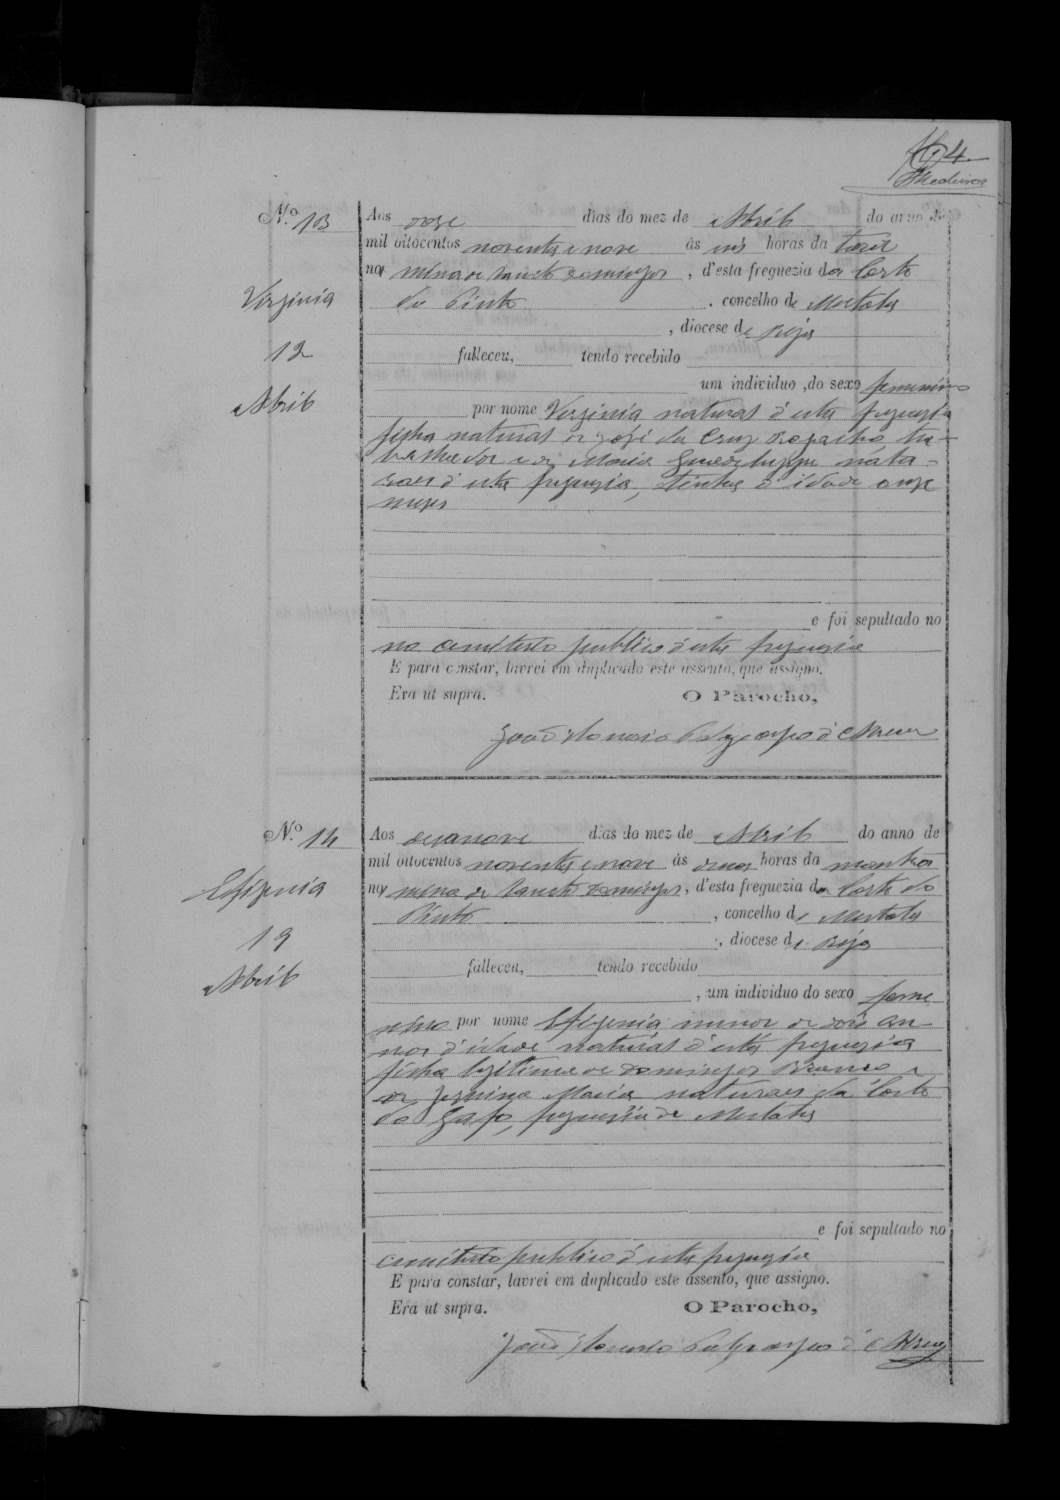 4
Medeiros
N.º 13
Virginia
12
Abril
Aos doze dias do mez de Abril do anno de
mil oitocentos noventa e nove ás três horas da tarde
na mina de Sancto Domingos, d'esta freguezia da Corte
do Pinto, concelho de Mertola
, diocese de Beja
falleceu, tendo recebido
um individuo, do sexo femenino
por nome Virginia natural d'esta freguezia
filha natural de José da Cruz, tra-
balhador e de Maria natu-
raes d'esta freguezia, tendo d'idade onze
mezes
e foi sepultado no
no cemiterio publico d'esta freguezia
E para constar, lavrei em duplicado este assento, que assigno.
Era ut supra. O Parocho,
d'Abreu
N.º 14
Efigenia
19
Abril
Aos dezanove dias do mez de Abril do anno de
mil oitocentos noventa e nove ás horas da manhã
na mina de Sancto Domingos, d'esta freguezia da Corte do
Pinto, concelho de Mertola
, diocese de Beja
falleceu, tendo recebido
, um individuo do sexo feme
nino por nome Efigenia menor de dois an-
nos d'idade natural d'esta freguezia
filha legitima de Domingos e
de Maria naturaes da Corte
do Gafo, freguezia de Mertola
e foi sepultado no
cemiterio publico d'esta freguezia
E para constar, lavrei em duplicado este assento, que assigno.
Era ut supra. O Parocho,
d'Abreu